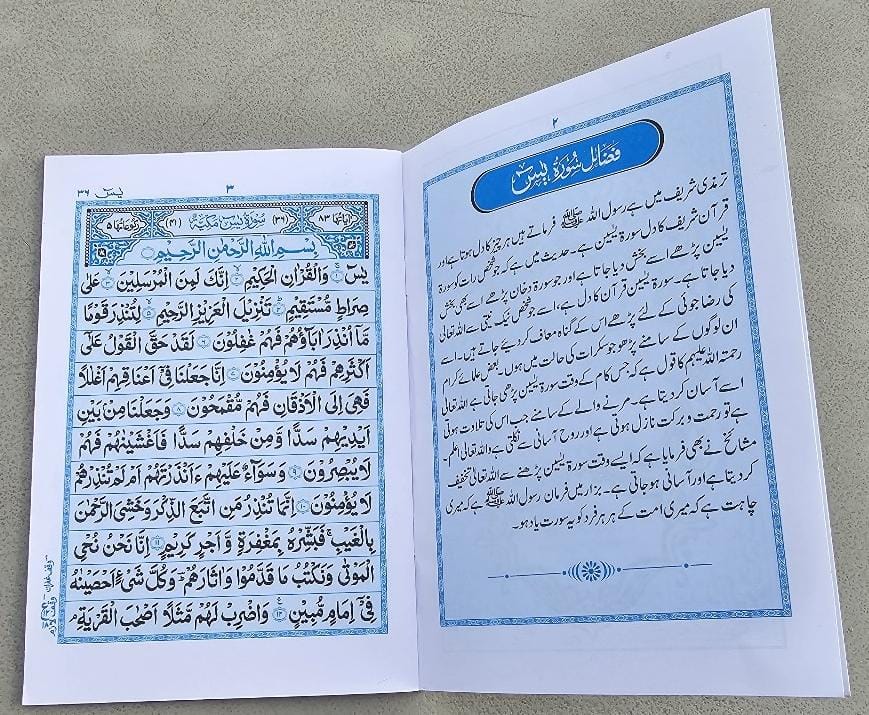 ۲
فضائل سُورۃ یٰسٓ
ترمذی شریف میں ہے رسول اللہ ﷺ فرماتے ہیں ہر چیز کا دل ہوتا ہے اور
قرآن شریف کا دل سورۃ یٰسین ہے۔ حدیث میں ہے کہ جو شخص رات کو سورۃ
یٰسین پڑھے اسے بخش دیا جاتا ہے اور جو سورۃ دخان پڑھے اسے بھی بخش
دیا جاتا ہے۔ سورۃ یٰسین قرآن کا دل ہے، اسے جو شخص نیک نیتی سے اللہ تعالیٰ
کی رضا جوئی کے لئے پڑھے اس کے گناہ معاف کر دیئے جاتے ہیں۔ اسے
ان لوگوں کے سامنے پڑھو جو سکرات کی حالت میں ہوں۔ بعض علمائے کرام
رحمتہ اللہ علیہم کا قول ہے کہ جس کام کے وقت سورۃ یٰسین پڑھی جاتی ہے اللہ تعالیٰ
اسے آسان کر دیتا ہے۔ مرنے والے کے سامنے جب اس کی تلاوت ہوتی
ہے تو رحمت و برکت نازل ہوتی ہے اور روح آسانی سے نکلتی ہے واللہ تعالیٰ اعلم۔
مشائخ نے بھی فرمایا ہے کہ ایسے وقت سورۃ یٰسین پڑھنے سے اللہ تعالیٰ تخفیف
کر دیتا ہے اور آسانی ہو جاتی ہے۔ بزار میں فرمان رسول اللہ ﷺ ہے کہ میری
چاہت ہے کہ میری امت کے ہر ہر فرد کو یہ سورت یاد ہو۔
یٰسٓ ۳۶
۳
اٰیاتھا ۸۳
(۳۶) سُوْرَةُ يٰسٓ مَكِّيَّةٌ (۴۱)
رکوعاتھا ۵
بِسْمِ اللهِ الرَّحْمٰنِ الرَّحِيْمِ
يٰسٓ ۱ وَالْقُرْاٰنِ الْحَكِيْمِ ۲ اِنَّكَ لَمِنَ الْمُرْسَلِيْنَ ۳ عَلٰى
صِرَاطٍ مُّسْتَقِيْمٍ ۴ تَنْزِيْلَ الْعَزِيْزِ الرَّحِيْمِ ۵ لِتُنْذِرَ قَوْمًا
مَّاۤ اُنْذِرَ اٰبَآؤُهُمْ فَهُمْ غٰفِلُوْنَ ۶ لَقَدْ حَقَّ الْقَوْلُ عَلٰۤى
اَكْثَرِهِمْ فَهُمْ لَا يُؤْمِنُوْنَ ۷ اِنَّا جَعَلْنَا فِيْۤ اَعْنَاقِهِمْ اَغْلٰلًا
فَهِيَ اِلَى الْاَذْقَانِ فَهُمْ مُّقْمَحُوْنَ ۸ وَجَعَلْنَا مِنْۢ بَيْنِ
اَيْدِيْهِمْ سَدًّا وَّمِنْ خَلْفِهِمْ سَدًّا فَاَغْشَيْنٰهُمْ فَهُمْ
لَا يُبْصِرُوْنَ ۹ وَسَوَآءٌ عَلَيْهِمْ ءَاَنْذَرْتَهُمْ اَمْ لَمْ تُنْذِرْهُمْ
لَا يُؤْمِنُوْنَ ۱۰ اِنَّمَا تُنْذِرُ مَنِ اتَّبَعَ الذِّكْرَ وَخَشِيَ الرَّحْمٰنَ
بِالْغَيْبِ ۚ فَبَشِّرْهُ بِمَغْفِرَةٍ وَّاَجْرٍ كَرِيْمٍ ۱۱ اِنَّا نَحْنُ نُحْيِ
الْمَوْتٰى وَنَكْتُبُ مَا قَدَّمُوْا وَاٰثَارَهُمْ ؕ وَكُلَّ شَيْءٍ اَحْصَيْنٰهُ
فِيْۤ اِمَامٍ مُّبِيْنٍ ۱۲ وَاضْرِبْ لَهُمْ مَّثَلًا اَصْحٰبَ الْقَرْيَةِ ۘ
وقف غفران
وقف لازم